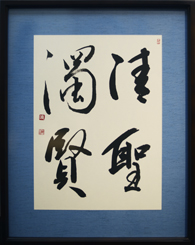 清聖
濁賢